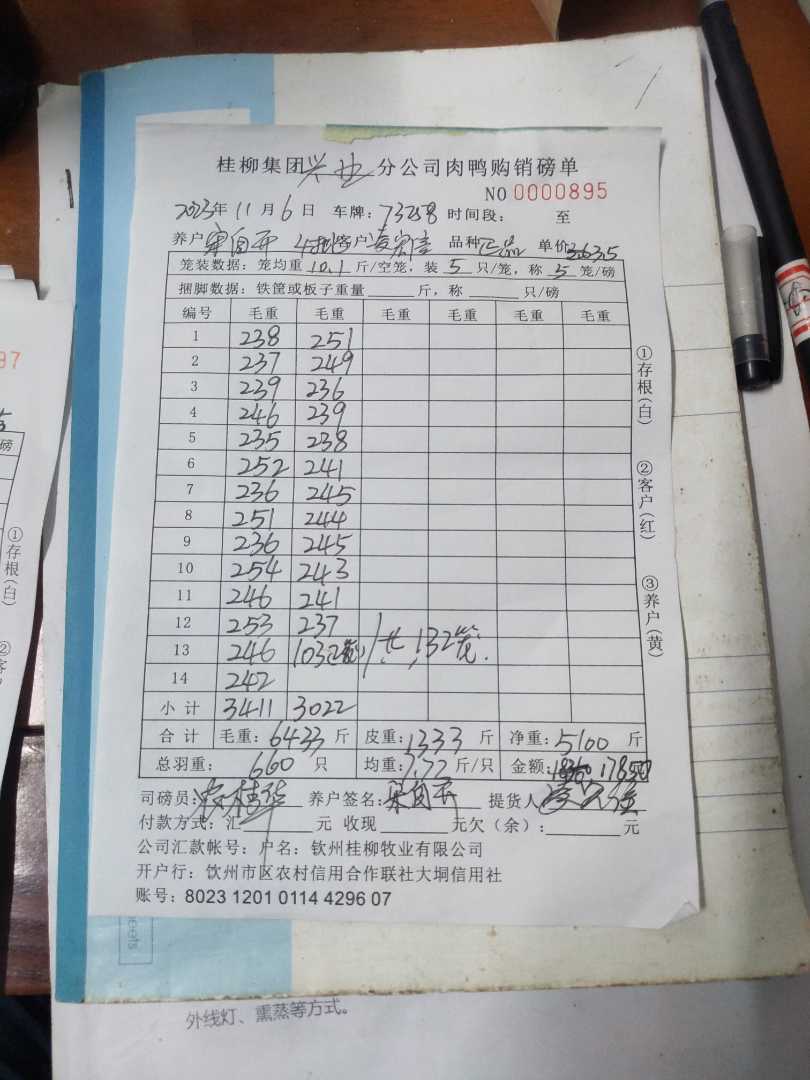 桂柳集团兴业分公司肉鸭购销磅单
NO 0000895
2023年11月6日 车牌:73258 时间段: 至
养户 自开 4批 客户 品种正品 单价3.635
笼装数据:笼均重10.1斤/空笼,装5只/笼,称5笼/磅
捆脚数据:铁筐或板子重量 斤,称 只/磅
编号 毛重 毛重 毛重 毛重 毛重 毛重
1 238 251
2 237 249
3 239 236
4 246 239
5 235 238
6 252 241
7 236 245
8 251 244
9 236 245
10 254 243
11 246 241
12 253 237
13 246 103(2笼) 共132笼.
14 242
小计 3411 3022
合计 毛重:6433斤 皮重:1333斤 净重:5100斤
总羽重: 660 只 均重:7.72斤/只 金额: 17850
司磅员: 桂华 养户签名: 自开 提货人
付款方式:汇 元 收现 元欠(余): 元
公司汇款帐号:户名:钦州桂柳牧业有限公司
开户行:饮州市区农村信用合作联社大垌信用社
账号:8023 1201 0114 4296 07
①存根(白)
②客户(红)
③养户(黄)
97
磅
①存根(白)
②客
eets
外线灯、熏蒸等方式。